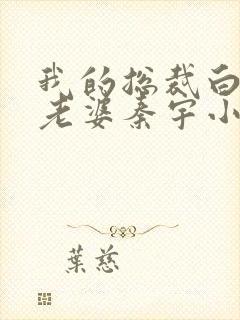 我的总裁白
老婆秦宇小
葉慈